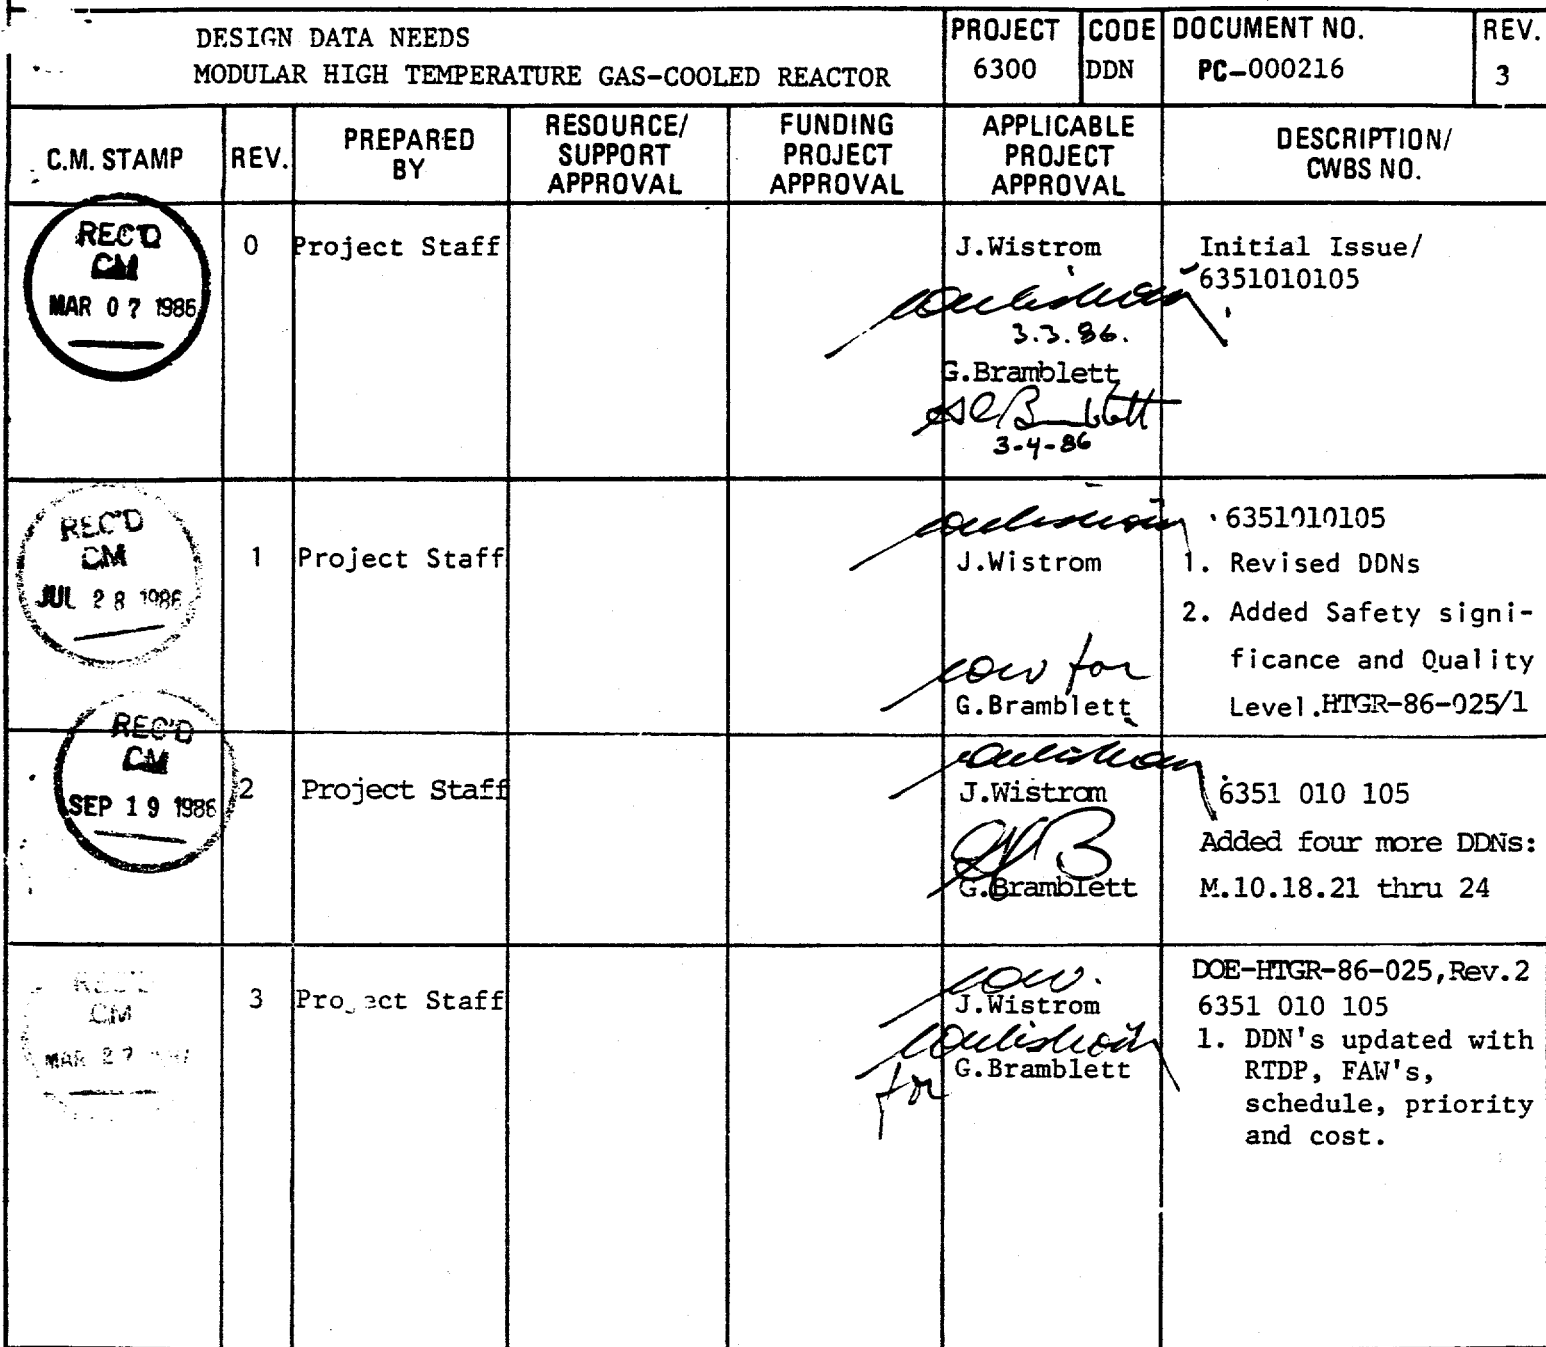 DESIGN DATA NEEDS
MODULAR HIGH TEMPERATURE GAS-COOLED REACTOR
PROJECT
6300
CODE
DDN
DOCUMENT NO.
PC-000216
REV.
3
C.M. STAMP
REV.
PREPARED
BY
RESOURCE/
SUPPORT
APPROVAL
FUNDING
PROJECT
APPROVAL
APPLICABLE
PROJECT
APPROVAL
DESCRIPTION/
CWBS NO.
REC'D
CM
MAR 07 1986
0
Project Staff
J.Wistrom
3.3.86.
G.Bramblett
3-4-86
Initial Issue/
6351010105
REC'D
CM
JUL 28 1986
1
Project Staff
J.Wistrom
for
G.Bramblett
6351010105
1. Revised DDNs
2. Added Safety signi-
ficance and Quality
Level.HTGR-86-025/1
REC'D
CM
SEP 19 1986
2
Project Staff
J.Wistrom
G.Bramblett
6351 010 105
Added four more DDNs:
M.10.18.21 thru 24
REC'D
CM
MAR 27
3
Project Staff
J.Wistrom
G.Bramblett
for
DOE-HTGR-86-025,Rev.2
6351 010 105
1. DDN's updated with
RTDP, FAW's,
schedule, priority
and cost.